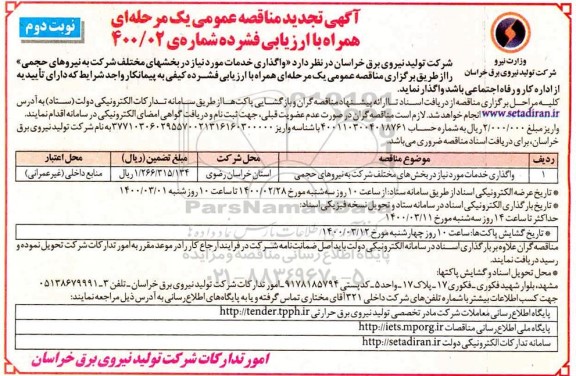 آگهی تجدید مناقصه عمومی یک مرحله‌ای
همراه با ارزیابی فشرده شماره‌ی ۴۰۰/۰۲
نوبت دوم
وزارت نیرو
شرکت تولید نیروی برق خراسان
شرکت تولید نیروی برق خراسان در نظر دارد «واگذاری خدمات مورد نیاز در بخشهای مختلف شرکت به نیروهای حجمی»
را از طریق برگزاری مناقصه عمومی یک مرحله‌ای همراه با ارزیابی فشرده کیفی به پیمانکار واجد شرایط که دارای تأییدیه
از اداره کار و رفاه اجتماعی باشد واگذار نماید.
کلیه مراحل برگزاری مناقصه از دریافت اسناد تا ارائه پیشنهاد مناقصه گران و بازگشایی پاکت‌ها از طریق سامانه تدارکات الکترونیکی دولت (ستاد) به آدرس
www.setadiran.ir انجام خواهد شد. لازم است مناقصه گران در صورت عدم عضویت قبلی، جهت ثبت نام و دریافت گواهی امضای الکترونیکی در سامانه اقدام نمایند.
واریز مبلغ ۲/۰۰۰/۰۰۰ ریال به شماره حساب ۴۰۰۱۱۰۳۰۰۴۰۱۸۷۶۱ با شناسه واریز به نام شرکت تولید نیروی برق
خراسان، برای دریافت اسناد مناقصه ضروری می‌باشد.
ردیف موضوع مناقصه محل شرکت مبلغ تضمین (ریال) محل اعتبار
۱ واگذاری خدمات مورد نیاز در بخش‌های مختلف شرکت به نیروهای حجمی استان خراسان رضوی ۱/۲۶۶/۳۱۵/۱۳۴ منابع داخلی (غیر عمرانی)
* تاریخ عرضه الکترونیکی اسناد از طریق سامانه ستاد: از ساعت ۱۰ روز سه‌شنبه مورخ ۱۴۰۰/۰۲/۲۸ تا ساعت ۱۰ روز شنبه ۱۴۰۰/۰۳/۰۱
* تاریخ بارگذاری الکترونیکی اسناد در سامانه ستاد و تحویل نسخه فیزیکی اسناد:
حداکثر تا ساعت ۱۴ روز سه‌شنبه مورخ ۱۴۰۰/۰۳/۱۱
* تاریخ گشایش پاکت‌ها: ساعت ۱۰ روز چهارشنبه مورخ ۱۴۰۰/۰۳/۱۲
مناقصه گران علاوه بر بارگذاری اسناد در سامانه الکترونیکی دولت باید اصل ضمانت‌نامه شرکت در فرآیند ارجاع کار را در موعد مقرر به امور تدارکات شرکت تحویل نموده و
رسید دریافت نمایند.
* محل تحویل اسناد و گشایش پاکتها:
مشهد، بلوار شهید فکوری - فکوری ۱۷ - پلاک ۱۷ - واحد ۵ - کدپستی ۹۱۷۸۱۸۵۷۹۴ - امور تدارکات شرکت تولید نیروی برق خراسان - تلفن ۰۵۱۳۸۶۷۹۹۹۱-۳
جهت کسب اطلاعات بیشتر با شماره تلفن‌های شرکت داخلی ۳۲۱ آقای مختاری تماس گرفته و یا به پایگاه‌های اطلاع‌رسانی به آدرس ذیل مراجعه نمایند:
پایگاه اطلاع رسانی معاملات شرکت مادر تخصصی تولید نیروی برق حرارتی http://tender.tpph.ir
پایگاه ملی اطلاع رسانی مناقصات http://iets.mporg.ir
سامانه تدارکات الکترونیکی دولت http://setadiran.ir
امور تدارکات شرکت تولید نیروی برق خراسان
ParsNamadData
پایگاه اطلاع رسانی مناقصه و مزایده
۰۲۱-۸۸۳۴۹۶۷۰-۵